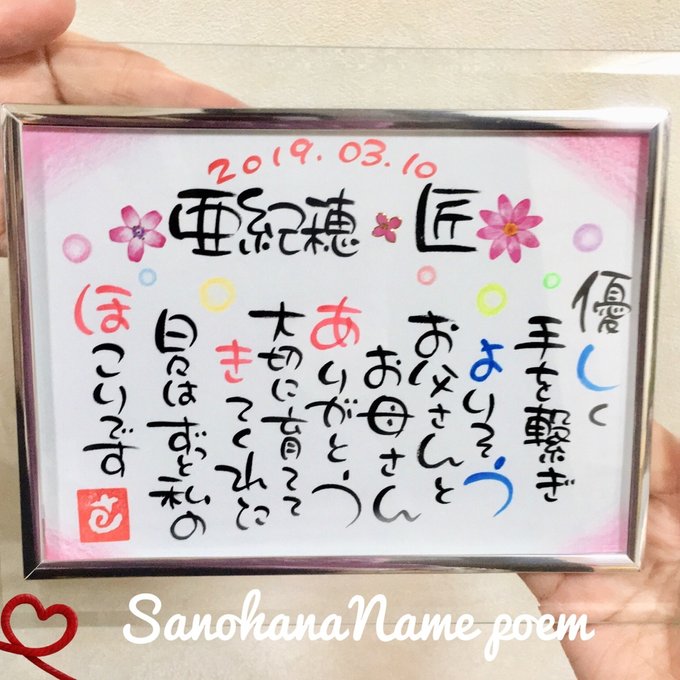 2019.03.10
亜紀穂 匠
優しく
手を繋ぎ
よりそう
お父さんと
お母さん
ありがとう
大切に育てて
きてくれた
はずっと私の
ほこりです
さ
SanohanaName poem